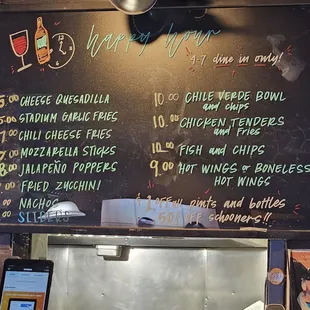 happy hour
4-7 dine in only!
5.00 CHEESE QUESADILLA
5.00 STADIUM GARLIC FRIES
7.00 CHILI CHEESE FRIES
7.00 MOZZARELLA STICKS
8.00 JALAPEÑO POPPERS
7.00 FRIED ZUCCHINI
NACHOS
SLIDERS
10.00 CHILE VERDE BOWL
and chips
10.00 CHICKEN TENDERS
and FRIES
10.00 FISH and CHIPS
9.00 HOT WINGS or BONELESS
HOT WINGS
pints and bottles
schooners!!